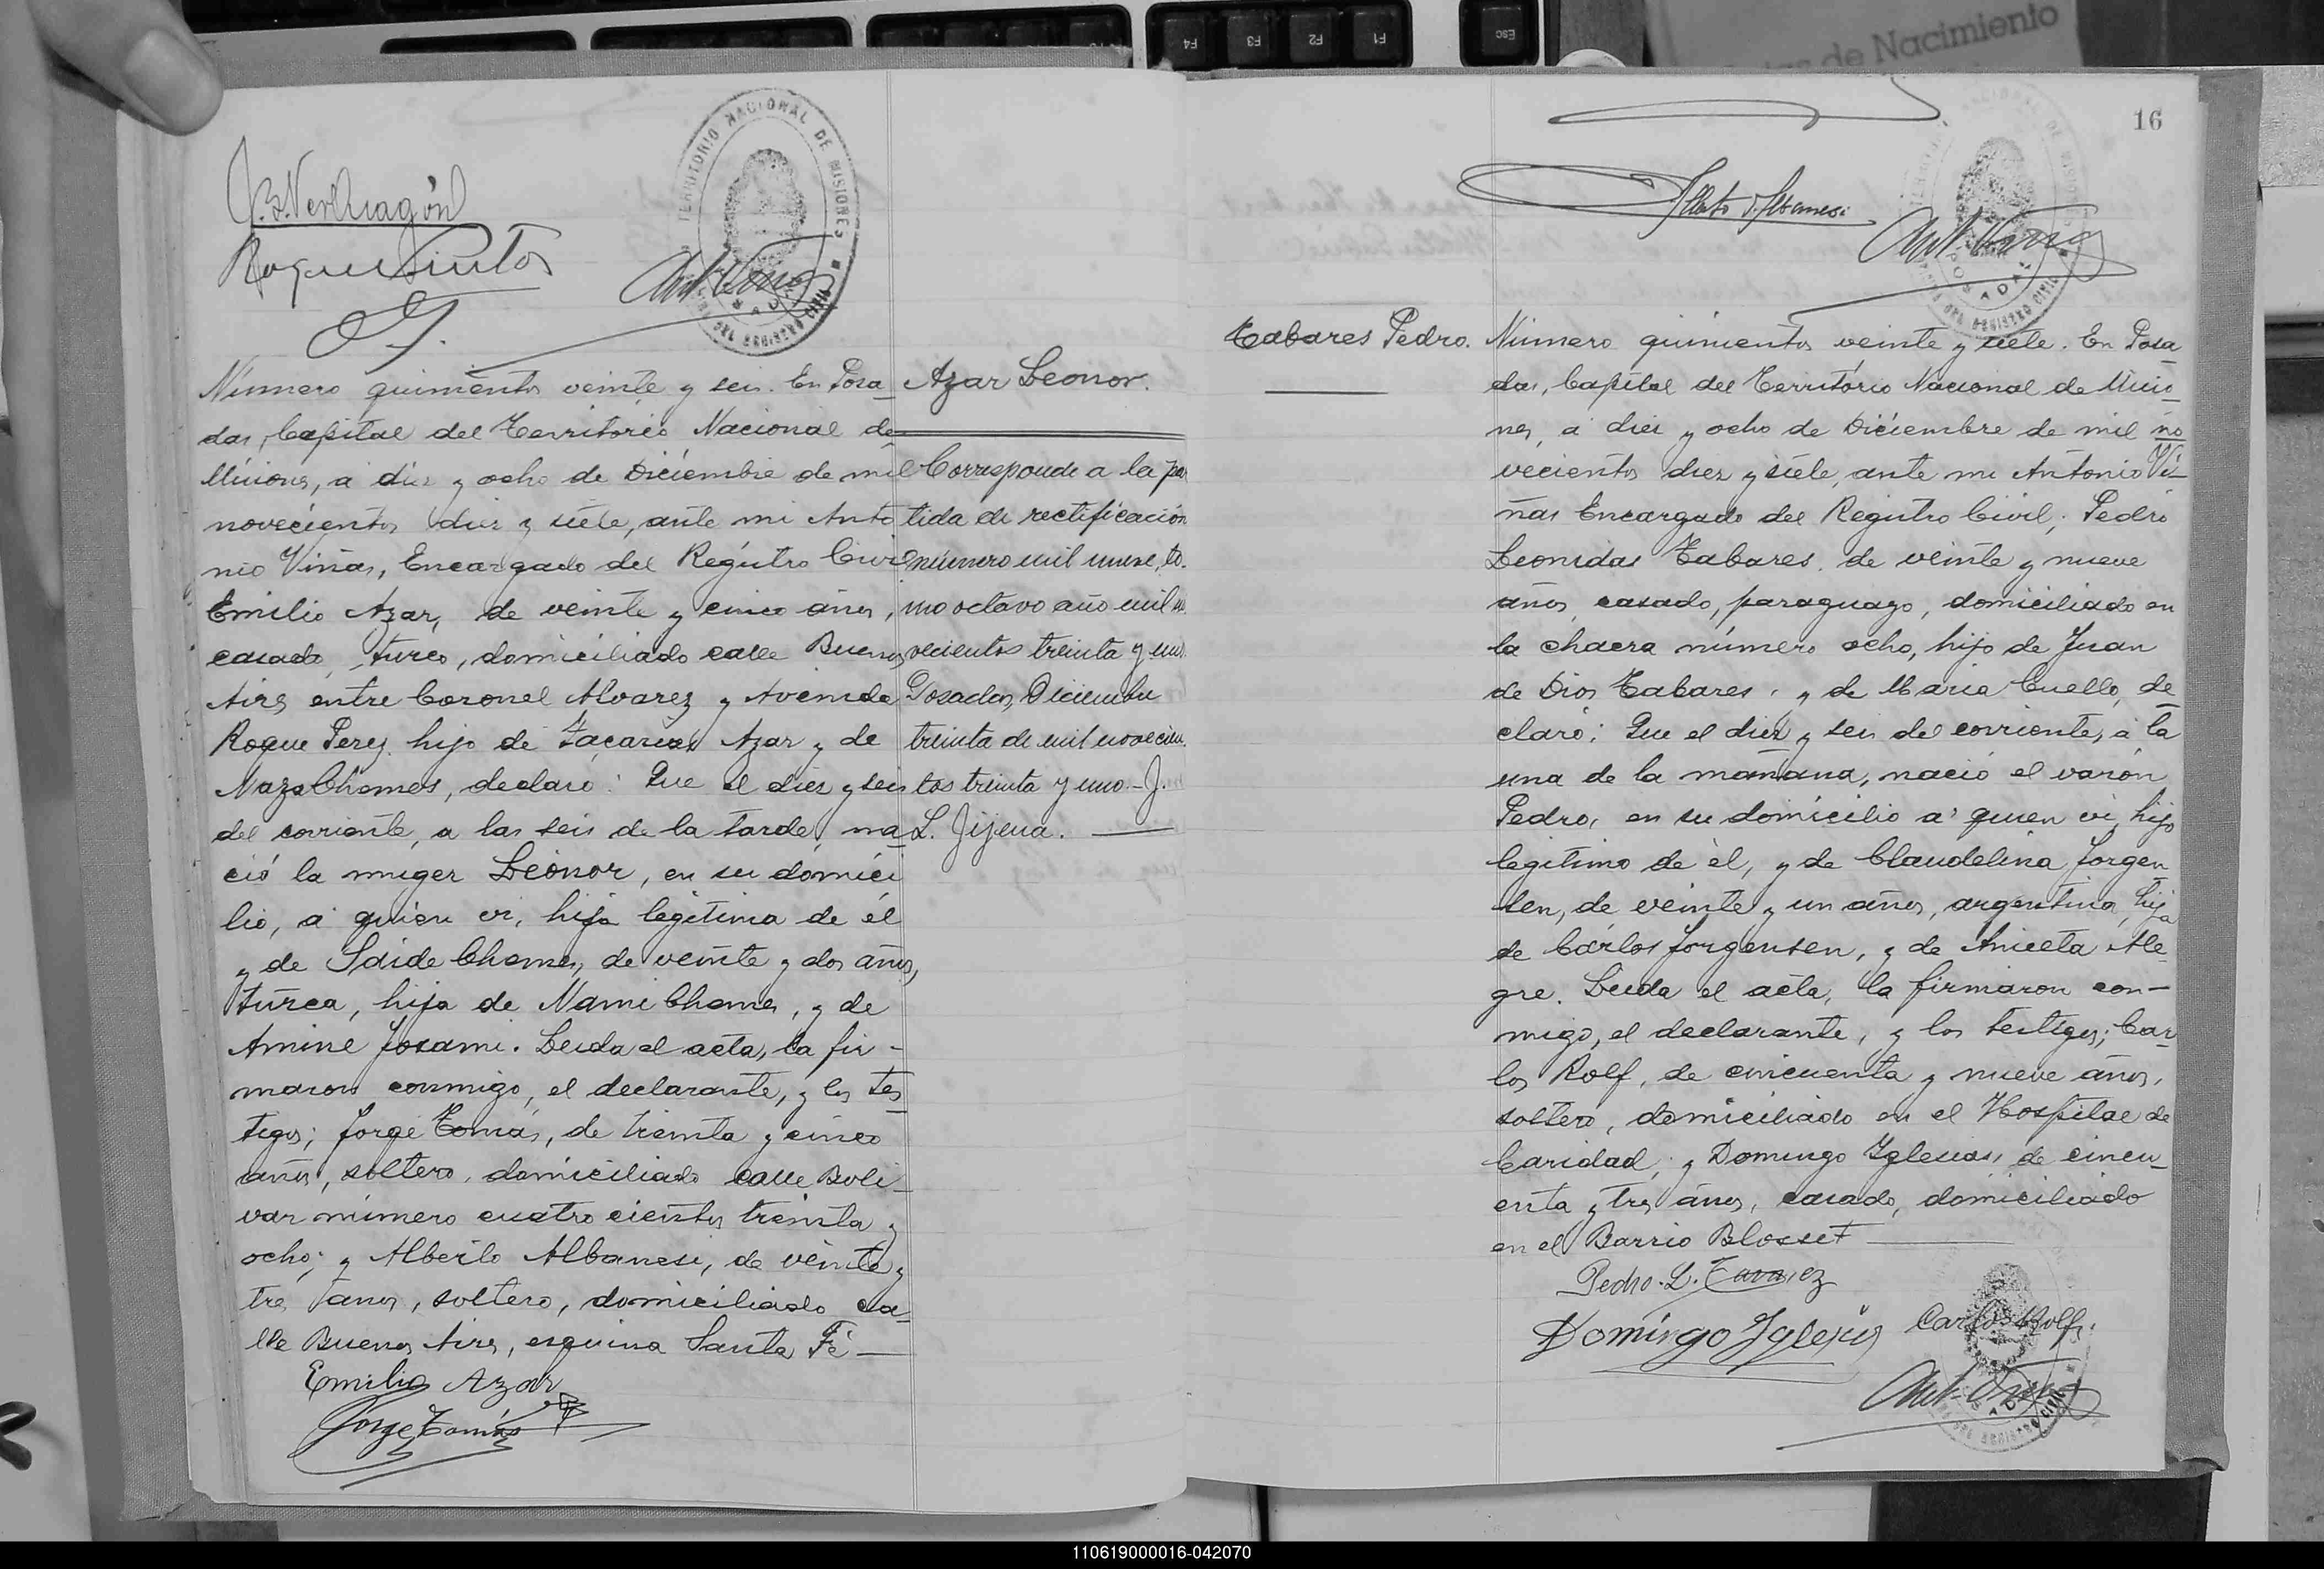 F4 F3 F2 F1 Esc
de Nacimiento
TERRITORIO NACIONAL DE MISIONES
Roque Pintos
Número quinientos veinte y seis. En Posa
das, Capital del Territorio Nacional de
Misiones, á diez y ocho de Diciembre de mil
novecientos diez y siete, ante mi Anto
nio Viñas, Encargado del Registro Civil
Emilio Azar, de veinte y cinco años,
casado, turco, domiciliado calle Buenos
Aires entre Coronel Alvarez y Avenida
Roque Perez, hijo de Zacarias Azar y de
Naza Chames, declaró: Que el diez y seis
del corriente, a las seis de la tarde, na
ció la muger Leonor, en su domici
lio, a quien vi, hija legitima de él
y de Saide Chames, de veinte y dos años,
turca, hija de Nami Chames, y de
Amine Josami. Leida el acta, la fir-
maron conmigo, el declarante, y los tes
tigos; Jorge Tomás, de treinta y cinco
años, soltero, domiciliado calle Boli
var número cuatrocientos treinta y
ocho; y Alberto Albanesi, de veinte y
tres años, soltero, domiciliado ca
lle Buenos Aires, esquina Santa Fé —
Emilio Azar
Jorge Tomás
Azar Leonor.
Corresponde a la par
tida de rectificación
número mil nueve, to.
mo octavo año mil no
vecientos treinta y uno.
Posadas, Diciembre
treinta de mil novecien.
tos treinta y uno.- J.
L. Jijena.
16
Alberto J. Albanesi
Tabares Pedro.
Número quinientos veinte y siete. En Posa
das, Capital del Territorio Nacional de Misio
nes, á diez y ocho de Diciembre de mil no
vecientos diez y siete, ante mi Antonio Vi
ñas Encargado del Registro Civil; Pedro
Leonidas Tabares, de veinte y nueve
años, casado, paraguayo, domiciliado en
la chacra número ocho, hijo de Juan
de Dios Tabares, y de Maria Cuello, de
claró; Que el diez y seis del corriente, á la
una de la mañana, nació el varón
Pedro, en su domicilio a quien vi, hijo
legitimo de él, y de Claudelina Jorgen
sen, de veinte y un años, argentina, hija
de Cárlos Jorgensen, y de Aniceta Ale
gre. Leida el acta, la firmaron con-
migo, el declarante, y los testigos; Car
los Rolf, de cincuenta y nueve años,
soltero, domiciliado en el Hospital de
Caridad; y Domingo Yglesias, de cincu
enta y tres años, casado, domiciliado
en el Barrio Blosset
Pedro. L. Tavarez
Domingo Yglesias Carlos Rolf.
110619000016-042070